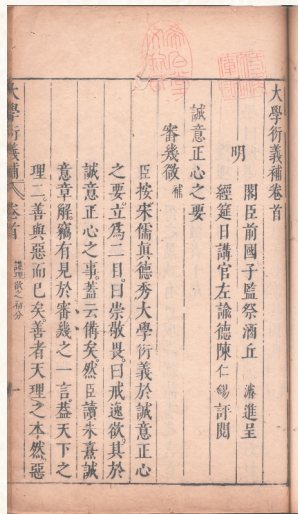 大學衍義補卷首
明
閣臣前國子監祭酒丘濬進呈
經筵日講官左諭德陳仁錫評閱
誠意正心之要
審幾微補
臣按宋儒眞德秀大學衍義於誠意正心
之要立爲二目曰崇敬畏曰戒逸欲其於
誠意正心之事蓋云備矣然臣讀朱熹誠
意章解竊有見於審幾之一言蓋天下之
理二善與惡而已矣善者天理之本然惡
謹理欲之初分
大學衍義補
卷首
一